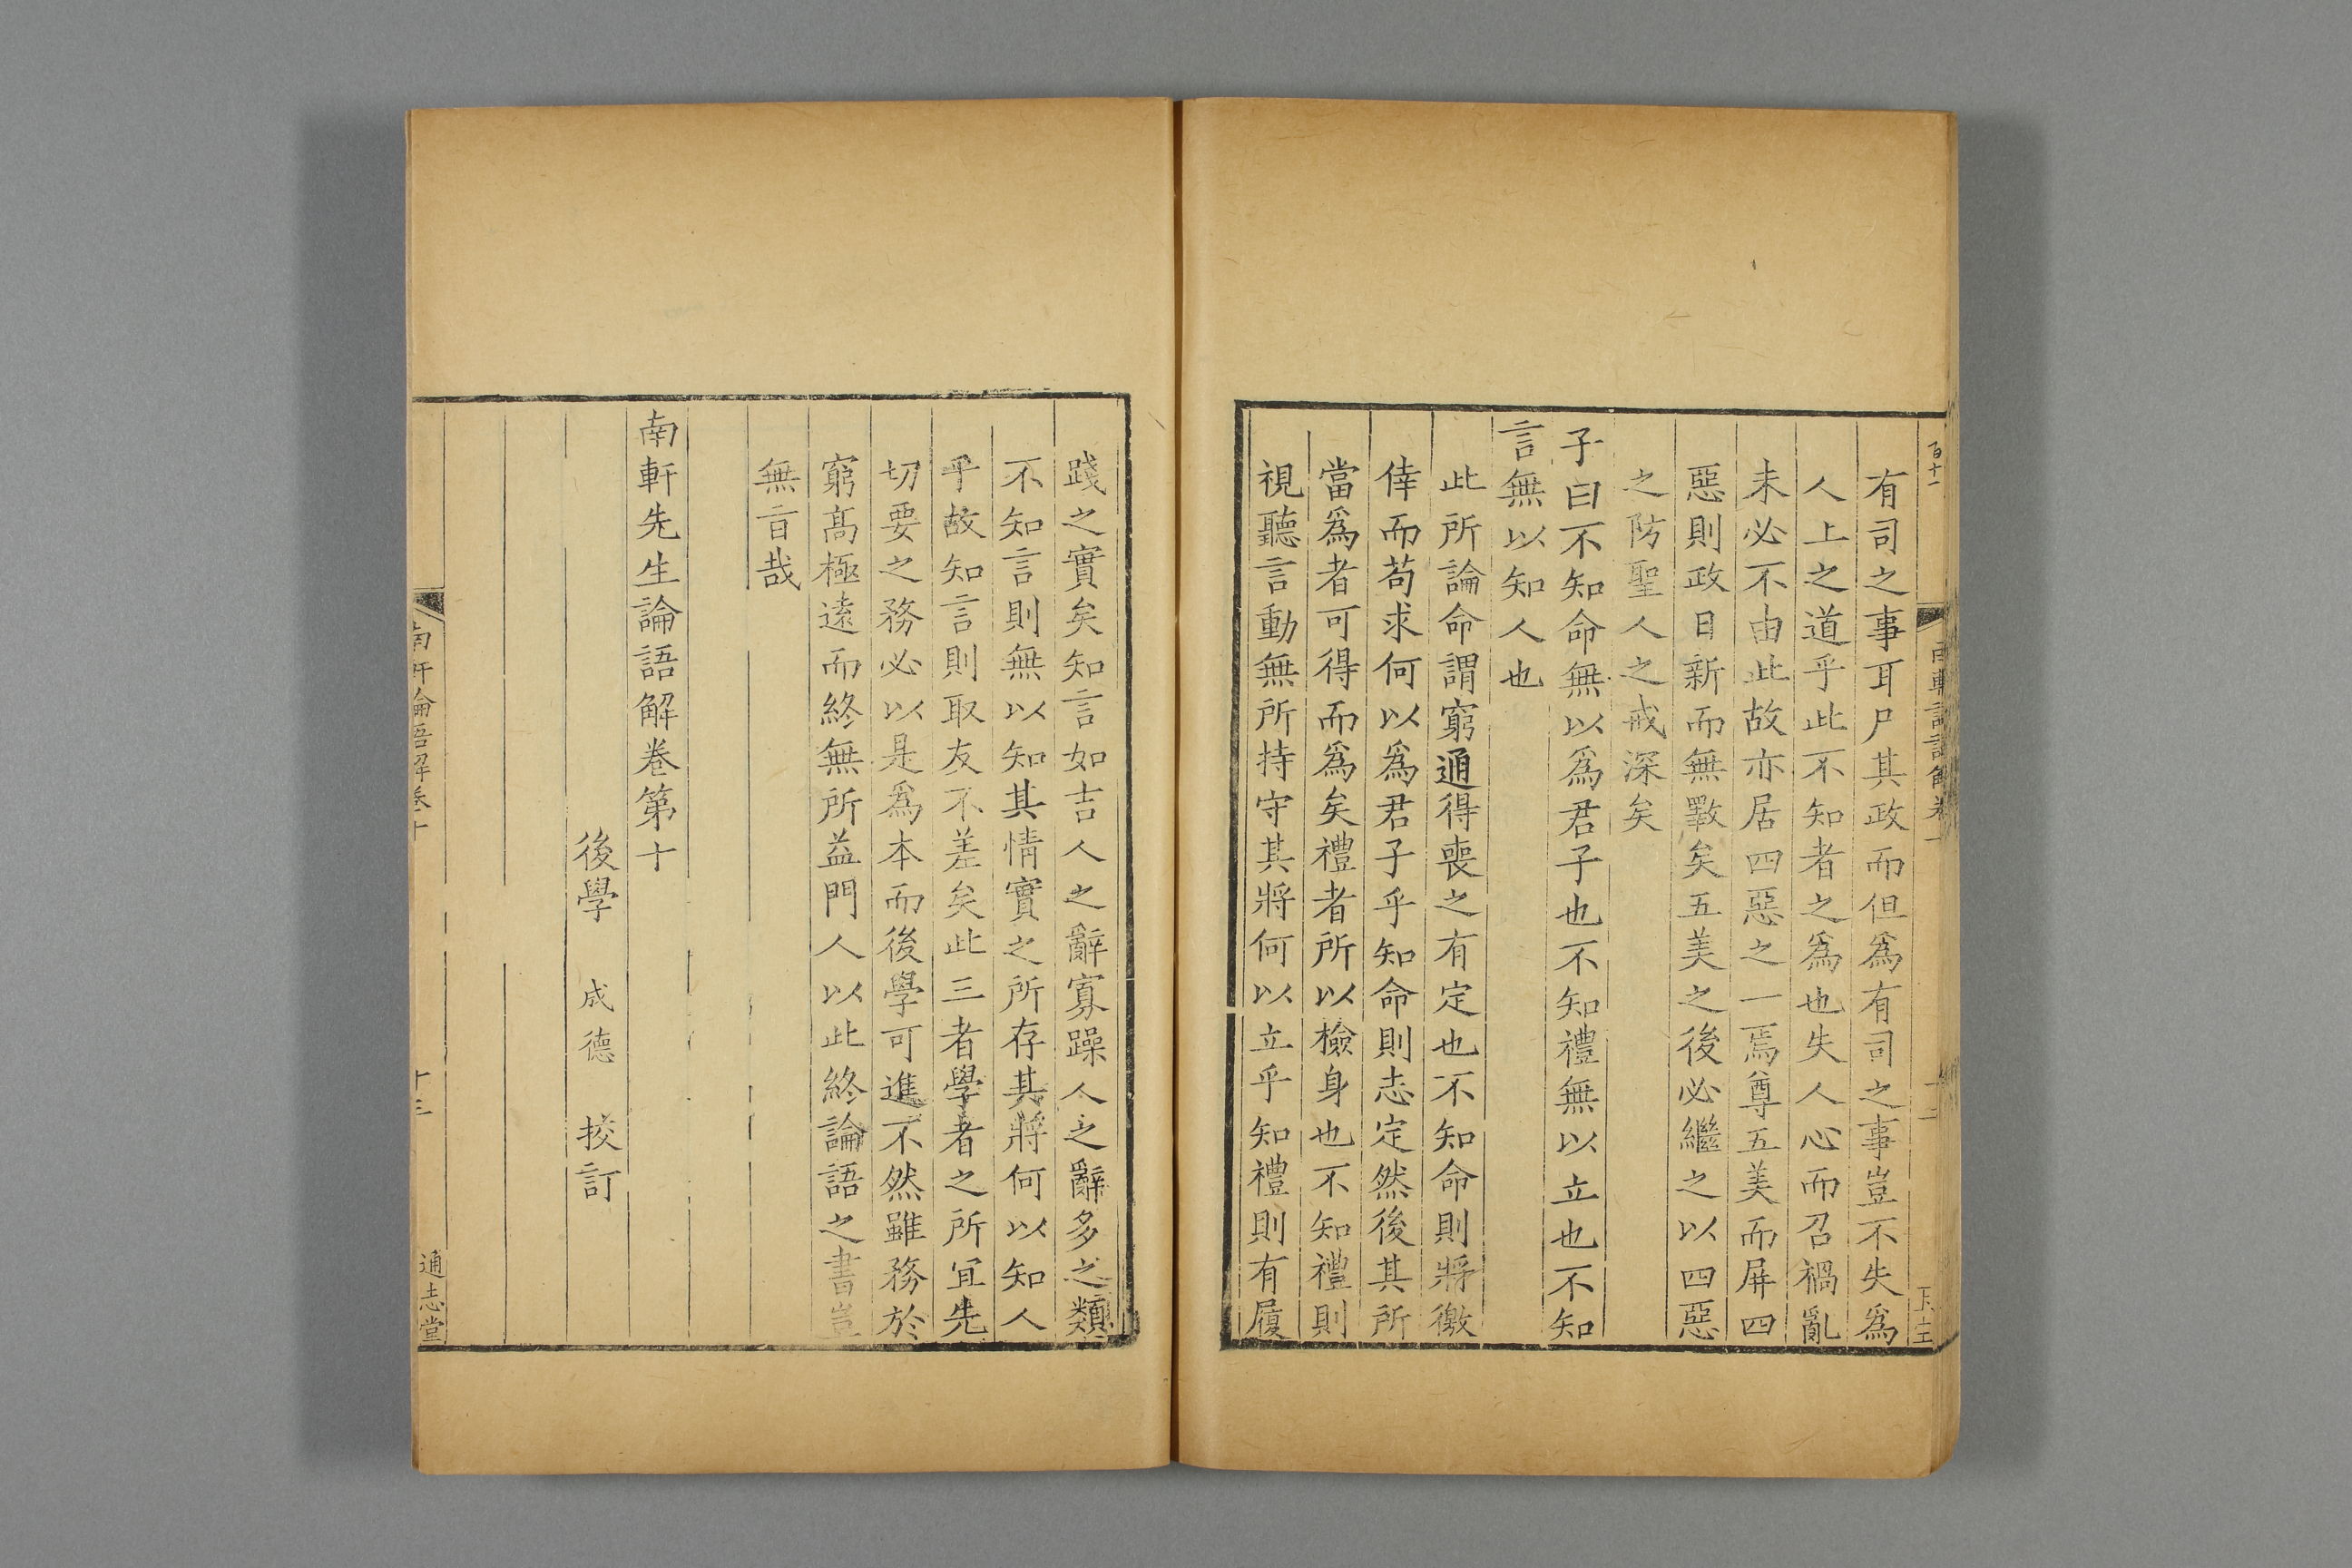 百十一
有司之事耳尸其政而但爲有司之事豈不失爲
人上之道乎此不知者之爲也失人心而召禍亂
未必不由此故亦居四惡之一焉尊五美而屏四
惡則政日新而無斁矣五美之後必繼之以四惡
之防聖人之戒深矣
子曰不知命無以爲君子也不知禮無以立也不知
言無以知人也
此所論命謂窮通得喪之有定也不知命則將徼
倖而苟求何以爲君子乎知命則志定然後其所
當爲者可得而爲矣禮者所以檢身也不知禮則
視聽言動無所持守其將何以立乎知禮則有履
踐之實矣知言如吉人之辭寡躁人之辭多之類
不知言則無以知其情實之所存其將何以知人
乎故知言則取友不差矣此三者學者之所宜先
切要之務必以是爲本而後學可進不然雖務於
窮髙極遠而終無所益門人以此終論語之書豈
無旨哉
南軒先生論語解卷第十
後學 成德 挍訂
南軒論語解卷十
十三
通志堂